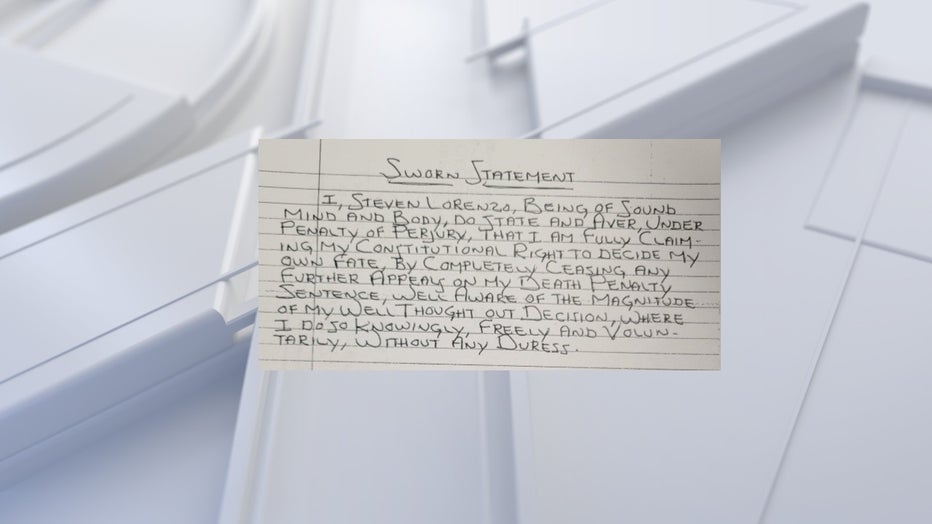 SWORN STATEMENT
I, STEVEN LORENZO, BEING OF SOUND
MIND AND BODY, DO STATE AND AVER, UNDER
PENALTY OF PERJURY, THAT I AM FULLY CLAIM-
ING MY CONSTITUTIONAL RIGHT TO DECIDE MY
OWN FATE, BY COMPLETELY CEASING ANY
FURTHER APPEALS ON MY DEATH PENALTY
SENTENCE, WELL AWARE OF THE MAGNITUDE
OF MY WELL THOUGHT OUT DECISION, WHERE
I DO SO KNOWINGLY, FREELY AND VOLUN-
TARILY, WITHOUT ANY DURESS.